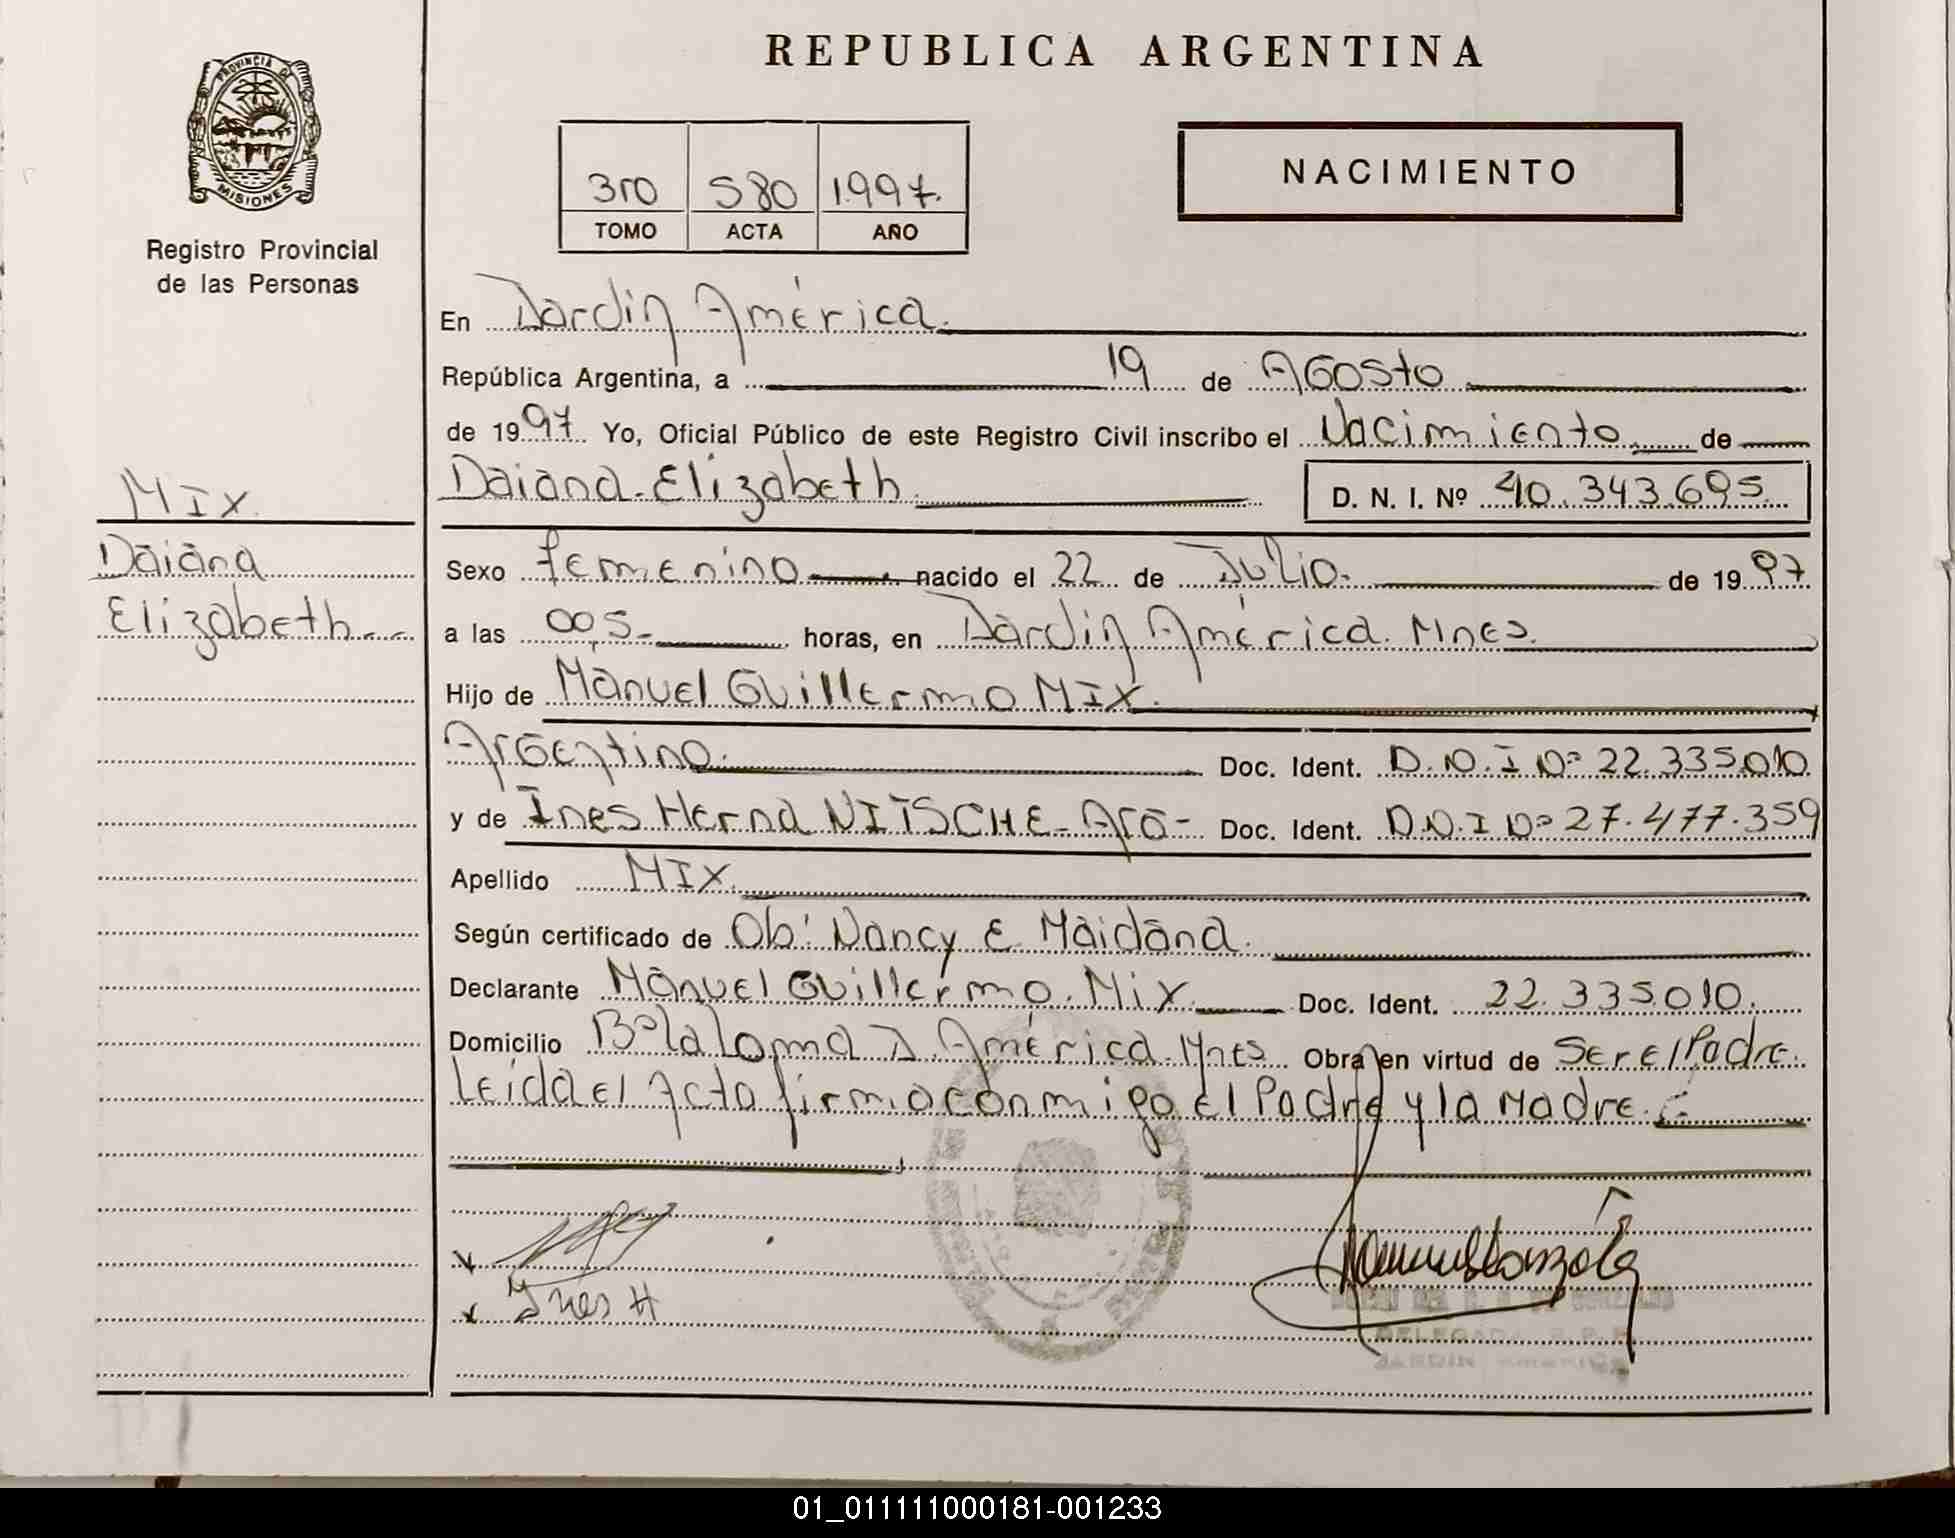 REPUBLICA ARGENTINA
PROVINCIA DE
MISIONES
Registro Provincial
de las Personas
3ro 580 1.997.
TOMO ACTA AÑO
NACIMIENTO
En Jardín América.
República Argentina, a 19 de Agosto
de 1997. Yo, Oficial Público de este Registro Civil inscribo el Nacimiento de
Daiana Elizabeth. D. N. I. Nº 40.343.695
MIX
Daiana
Elizabeth
Sexo femenino nacido el 22 de Julio. de 1997
a las 00,5 horas, en Jardín América. Mnes.
Hijo de Manuel Guillermo MIX.
Argentino. Doc. Ident. D.N.I Nº 22.335.010
y de Ines Herna NITSCHE - Arg - Doc. Ident. D.N.I Nº 27.477.359
Apellido MIX.
Según certificado de Ob: Nancy E Maidana.
Declarante Manuel Guillermo Mix Doc. Ident. 22.335.010.
Domicilio Bº la loma J. América. Mnes Obra en virtud de Ser el Padre.
Leída el Acta firma conmigo el Padre y la Madre.
Ines H
DELEGADA R.P.P.
JARDIN AMERICA
01_011111000181-001233